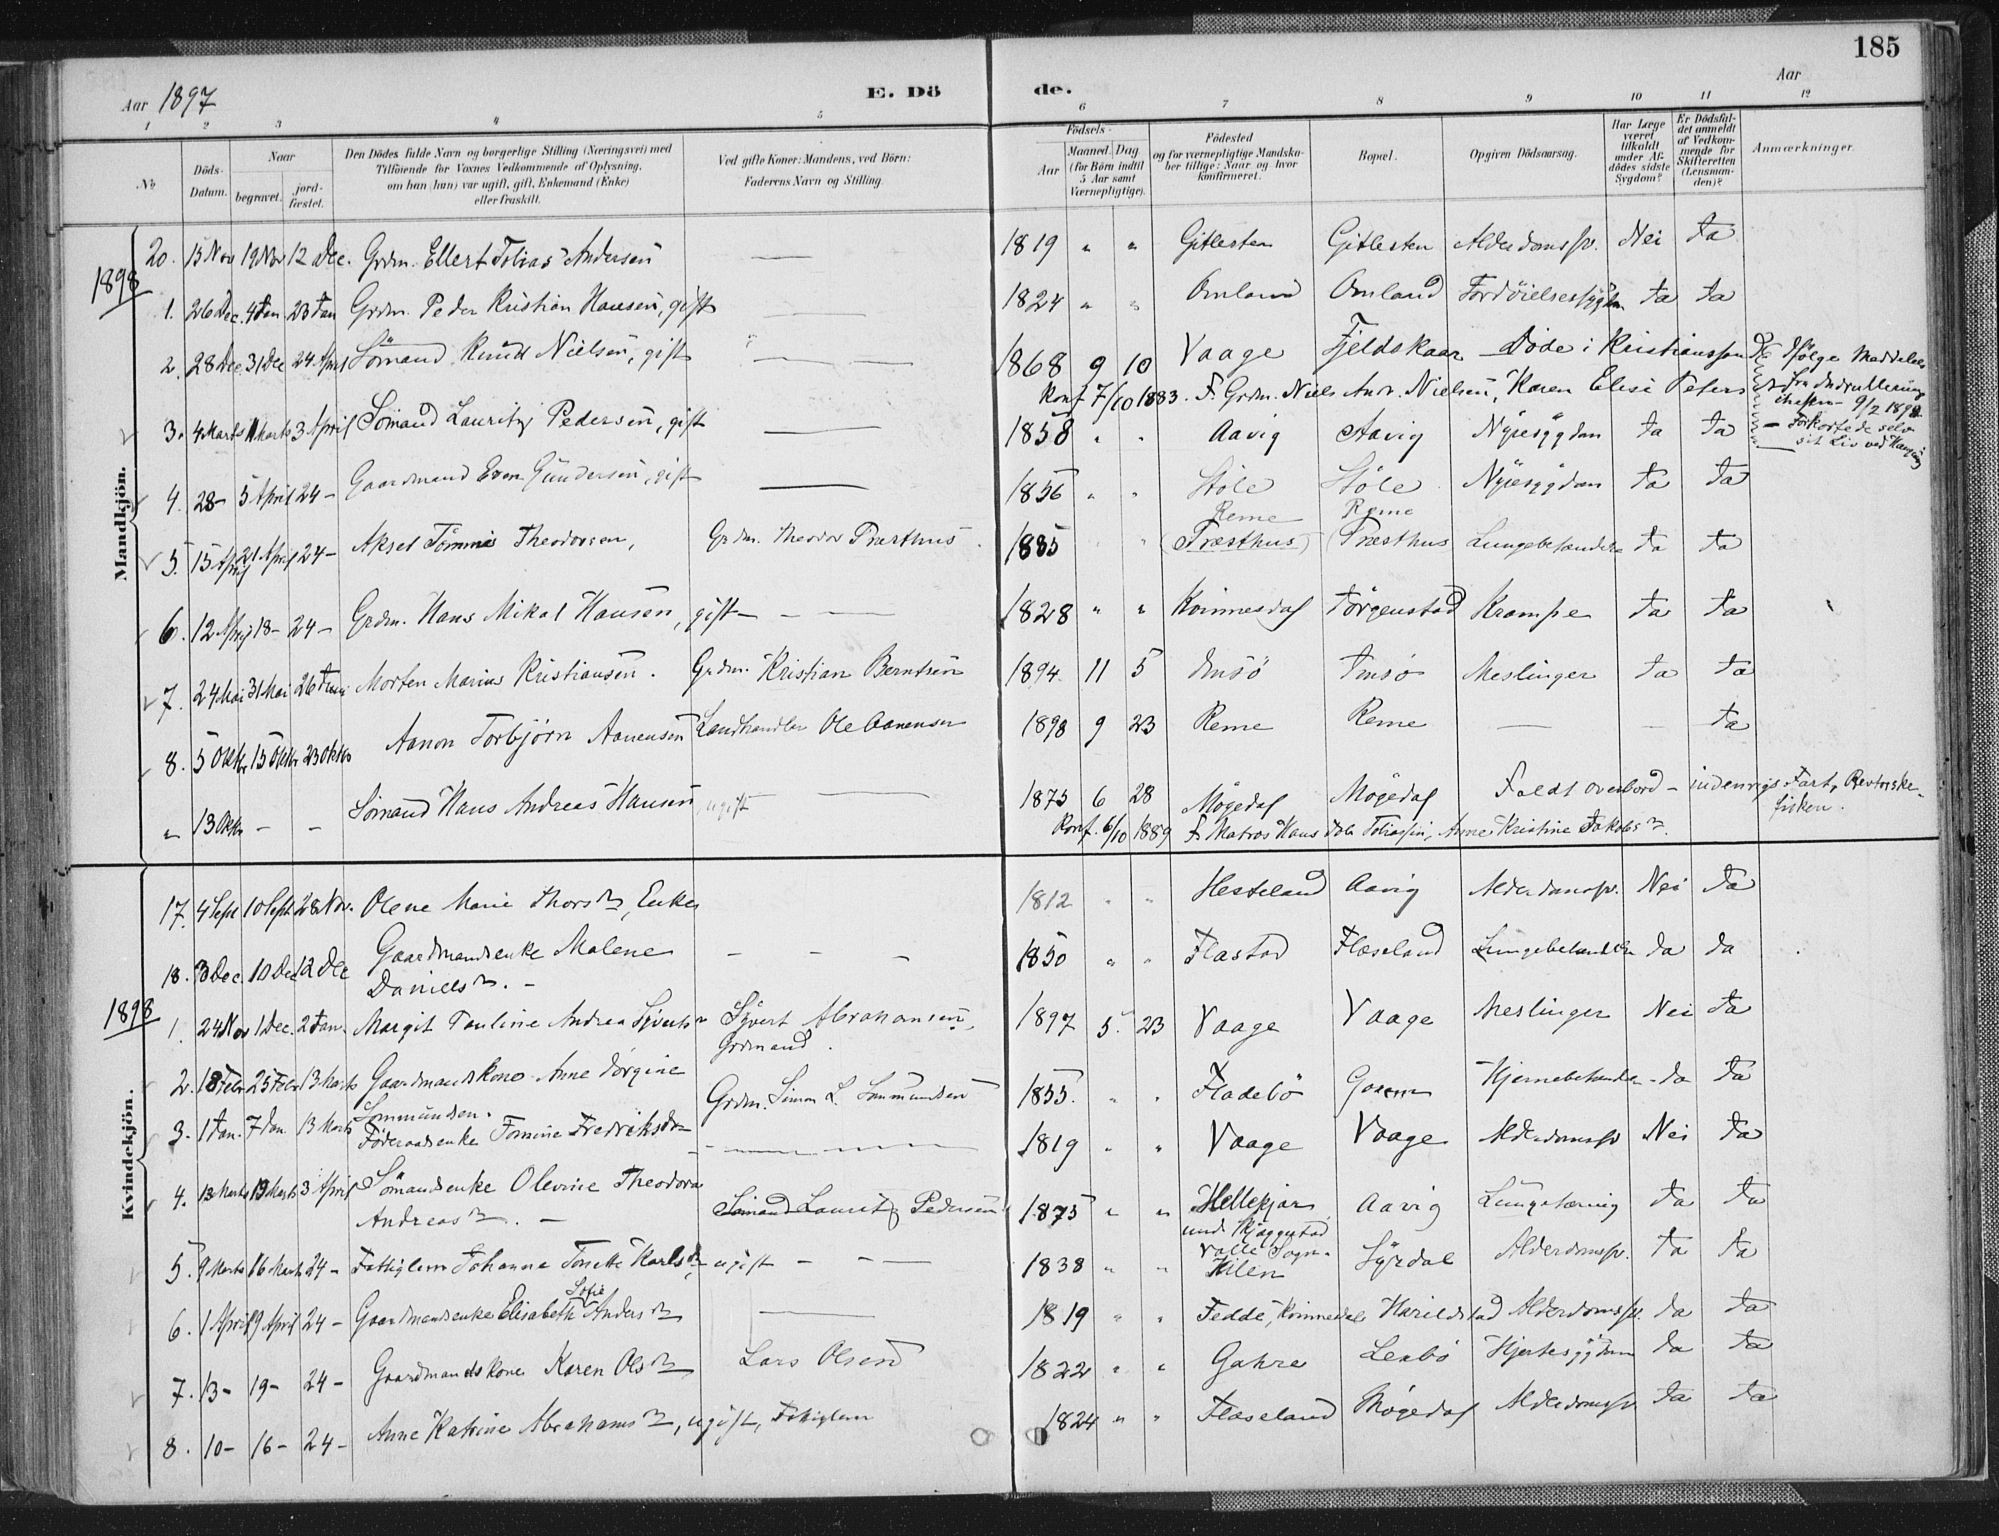 185
Aar 1897 E. Dö de. Aar
1 2 3 4 5 6 7 8 9 10 11 12
No
Döds-Datum.
Naar
begravet.
jord-fæstet.
Den Dödes fulde Navn og borgerlige Stilling (Næringsvei) med
Tilföiende for Voxnes Vedkommende af Oplysning,
om han (hun) var ugift, gift, Enkemand (Enke)
eller fraskilt.
Ved gifte Koner: Mandens, ved Börn:
Faderens Navn og Stilling.
Födsels-
Aar
Maaned. Dag
(for Börn indtil
5 Aar samt
Værnepligtige).
Födested
og for værnepligtige Mandska-
ber tillige: Naar og hvor
konfirmeret.
Bopæl.
Opgiven Dödsaarsag.
Har Læge
været
tilkaldt
under Af-
dödes sidste
Sygdom?
Er Dödsfal-
det anmeldt
af Vedkom-
mende for
Skifteretten
(Lensman-
den)?
Anmærkninger.
Mandkjön.
20. 15 Nov 19 Nov 12 Dec. Grdm. Ellert Tobias Andersen — 1819 " " Gitlesten Gitlesten Alderdomssv. Nei Ja
1898
1. 26 Dec. 4 Jan 23 Jan Grdm. Peder Kristian Hansen, gift — 1824 " " Omland Omland Fordöielsessygdom Ja Ja
2. 28 Dec. 31 Dec 24 April Sömand Knud Nielsen, gift — 1868 9 10 Vaage Fjeldskaar Döde i Kristianssand Ifölge Meddelelse
Konf 7/10 1883. F. Grdm. Niels Andr. Nielsen, Karen Elise Peters fra Indrullering
9/2 1898
3. 4 Marts 11 Marts 3 April Sömand Lauritz Pedersen, gift — 1858 " " Aavig Aavig Nyresygdom Ja Ja — Forkortede selv
sit Liv ved Hængning
4. 28 - 5 April 24 - Gaardmand Even Gundersen, gift — 1856 " " Stöle Stöle Nyresygdom Ja Ja
Reme Reme
5. 15 April 21 April 24 - Aksel Tömmes Theodorsen, Grdm. Theodor Præsthus 1885 " (Præsthus) (Præsthus Lungebetændelse Ja Ja
6. 12 April 18 - 24 - Grdm. Hans Mikal Hansen, gift — 1828 " " Kvinnesdal Jörgenstad Krampe Ja Ja
7. 24 Mai 31 Mai 26 Juni Morten Marius Kristiansen. Grdm. Kristian Berntsen 1894 11 5 Imsö Imsö Meslinger Ja Ja
8. 5 Oktbr 15 Oktbr 23 Oktbr Aanon Torbjörn Aanensen Landhandler Ole Aanensen 1898 9 23 Reme Reme — — Ja
" 13 Oktbr - - Sömand Hans Andreas Hansen ugift — 1875 6 28 Mögedal Mögedal Faldt overbord - indenrigs Fart,
fisken.
Konf. 6/10 1889 F. Matros Hans Tobiassen, Anne Kristine Jakobsd.
Kvindekjön.
17. 4 Sept 10 Sept 28 Nov. Olene Marie Thorsd, Enke 1812 " " Hesteland Aavig Alderdomssv. Nei Ja
18. 3 Dec. 10 Dec 12 Dec Gaardmandsenke Malene - - - 1850 " " Flastad Flæseland Lungebetændelse Ja Ja
Danielsd. -
1898
1. 24 Nov 1 Dec. 2 Jan. Margit Pauline Andrea Syvertsd Syvert Abrahamsen, 1897 5 23 Vaage Vaage Meslinger Nei Ja
Grdmand.
2. 18 Febr 25 Febr 13 Marts Gaardmandskone Anne Jörgine Grdm. Simon L. Sommundsen 1855. " " Fladebö Goseem Hjernebetændelse Ja Ja
Sommundsen.
3. 1 Jan. 7 Jan 13 Marts Föderaadsenke Tomine Fredriksd — 1819 " " Vaage Vaage Alderdomssv Nei Ja
4. 13 Marts 19 Marts 3 April Sömandsenke Olevine Theodora Sömand Lauritz Pedersen 1875 " " Hellekjær Aavig Lungetæring Ja Ja
Andreasd. - und. Skjæggestad
Valle Sogn.
5. 9 Marts 16 Marts 24 - Fattiglem Johanne Tonette Karlsd, ugift - - 1838 " " Kilen Syrdal Alderdomssv. Ja Ja
Sofie
6. 1 April 9 April 24 - Gaardmandsenke Elisabeth Andersd — 1819 " " Fedde, Kvinnesdal Harildstad Alderdomssv. Ja Ja
7. 13 - 19 - 24 - Gaardmandskone Karen Olsd Lars Olsen 1822 " " Gahre Lenbö Hjertesygdom Ja Ja
8. 10 - 16 - 24 - Anne Katrine Abrahamsd, ugift, Fattiglem 1824 " " Flæseland Mögedal Alderdomssv. Ja Ja